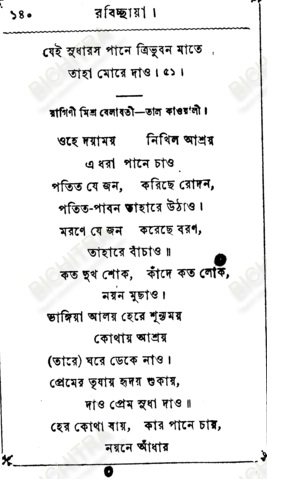 ১৪০ রবিচ্ছায়া।
যেই সুধারস পানে ত্রিভুবন মাতে
তাহা মোরে দাও। ৫১।
রাগিণী মিশ্র বেলাবতী—তাল কাওয়ালী।
ওহে দয়াময় নিখিল আশ্রয়
এ ধরা পানে চাও
পতিত যে জন, করিছে রোদন,
পতিত-পাবন তাহারে উঠাও।
মরণে যে জন করেছে বরণ,
তাহারে বাঁচাও॥
কত দুখ শোক, কাঁদে কত লোক,
নয়ন মুছাও।
ভাঙ্গিয়া আলয় হেরে শূন্যময়
কোথায় আশ্রয়
(তারে) ঘরে ডেকে নাও।
প্রেমের তৃষায় হৃদয় শুকায়,
দাও প্রেম সুধা দাও॥
হের কোথা যায়, কার পানে চায়,
নয়নে আঁধার